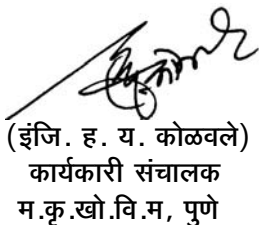 (इंजि. ह. य. कोळवले)
कार्यकारी संचालक
म.कृ.खो.वि.म, पुणे